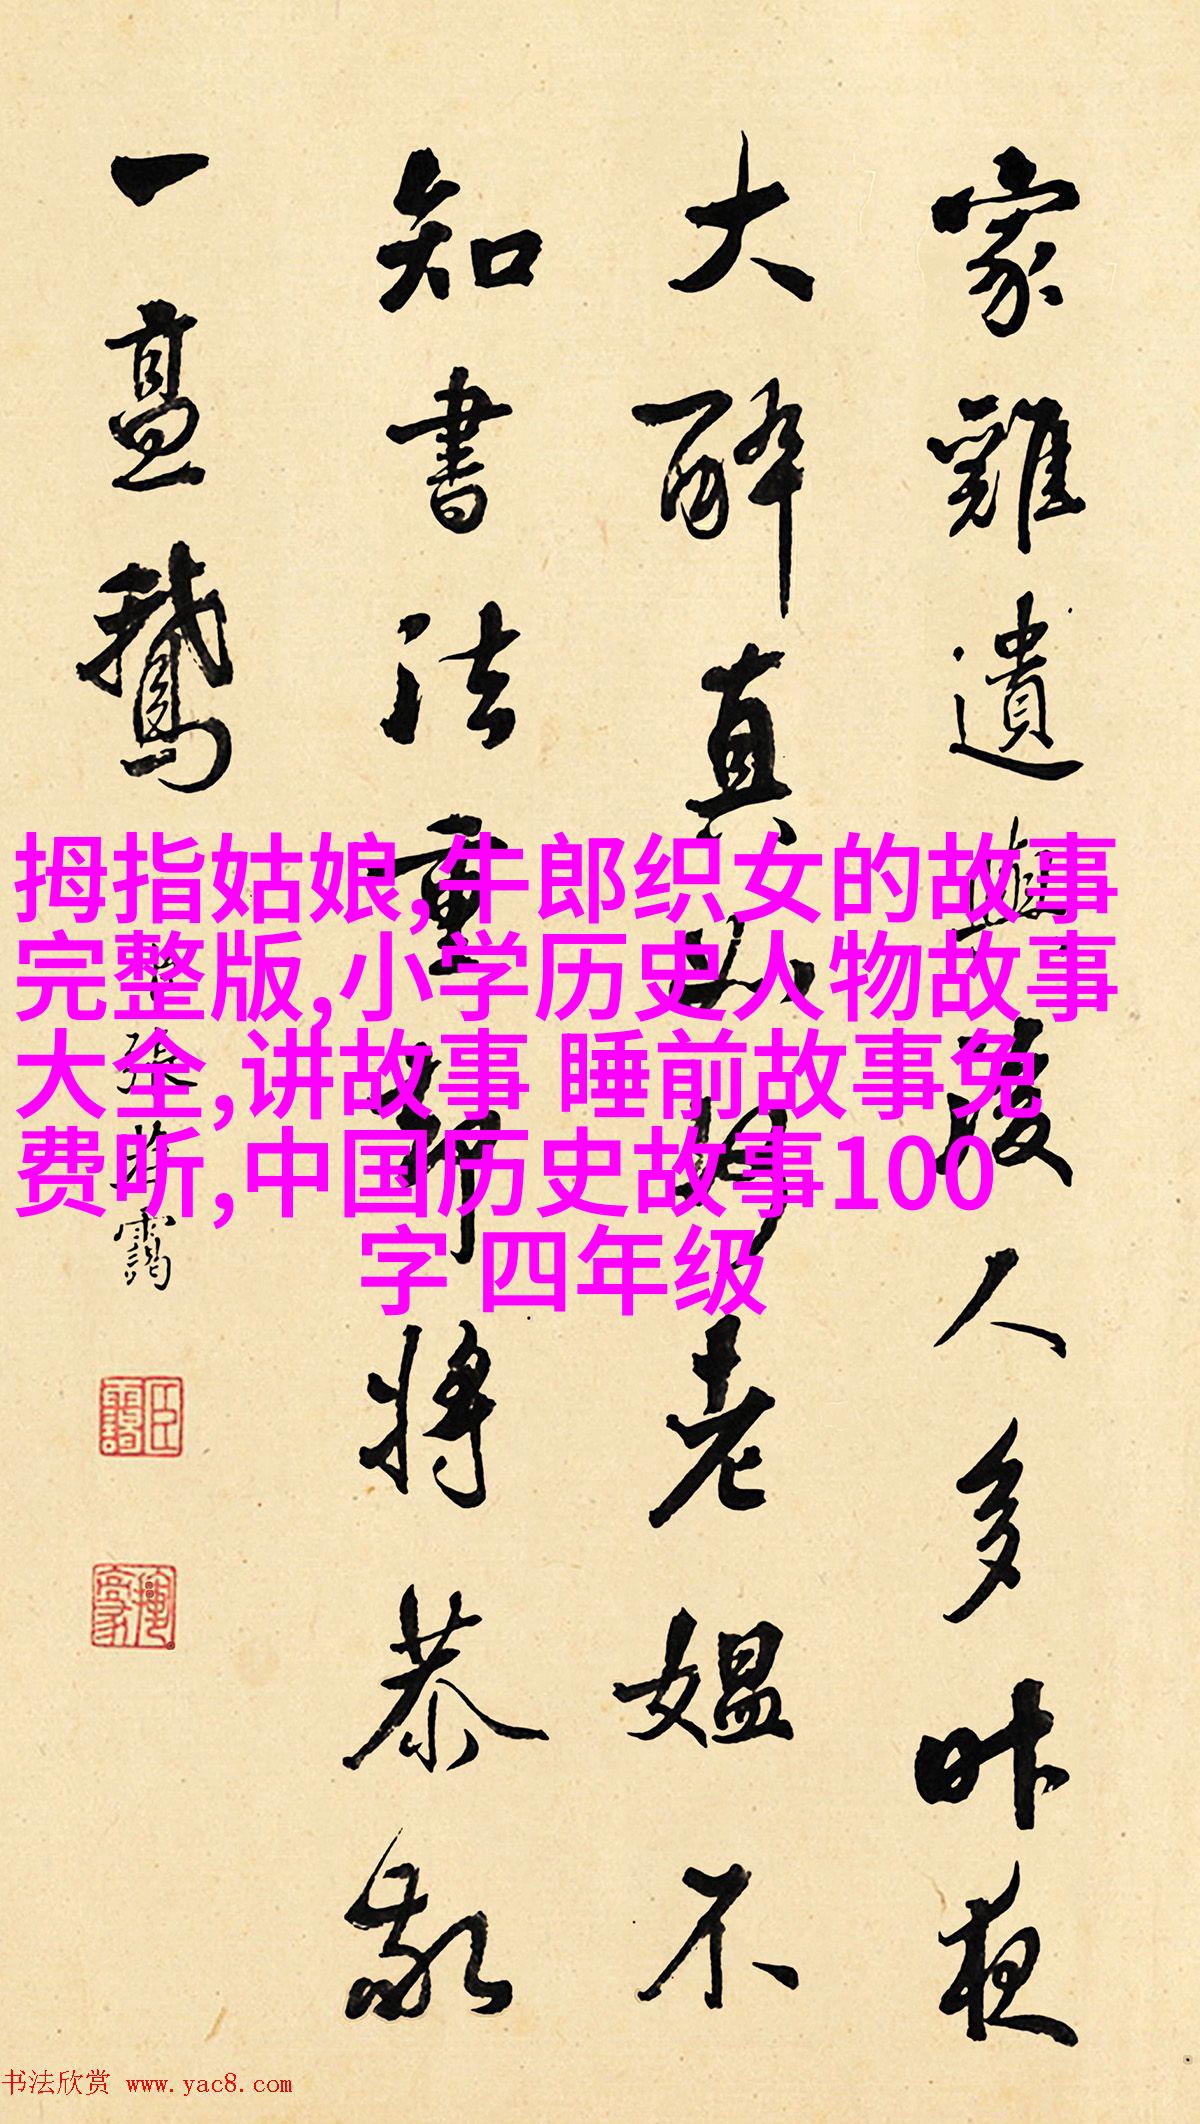 家雞遺人多昨夜
大醉真老媼不
知書法重將恭敬
一鵝
張若靄
拇指姑娘,牛郎织女的故事
完整版,小学历史人物故事
大全,讲故事 睡前故事免
费听,中国历史故事100
字 四年级
书法欣赏 www.yac8.com